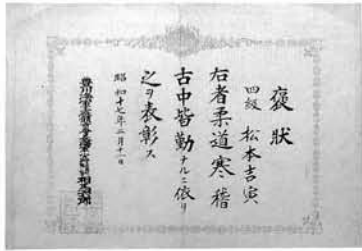 褒狀
四級 松本吉寅
右者柔道寒稽
古中皆勤ナルニ依リ
之ヲ表彰ス
昭和十七年二月十一日